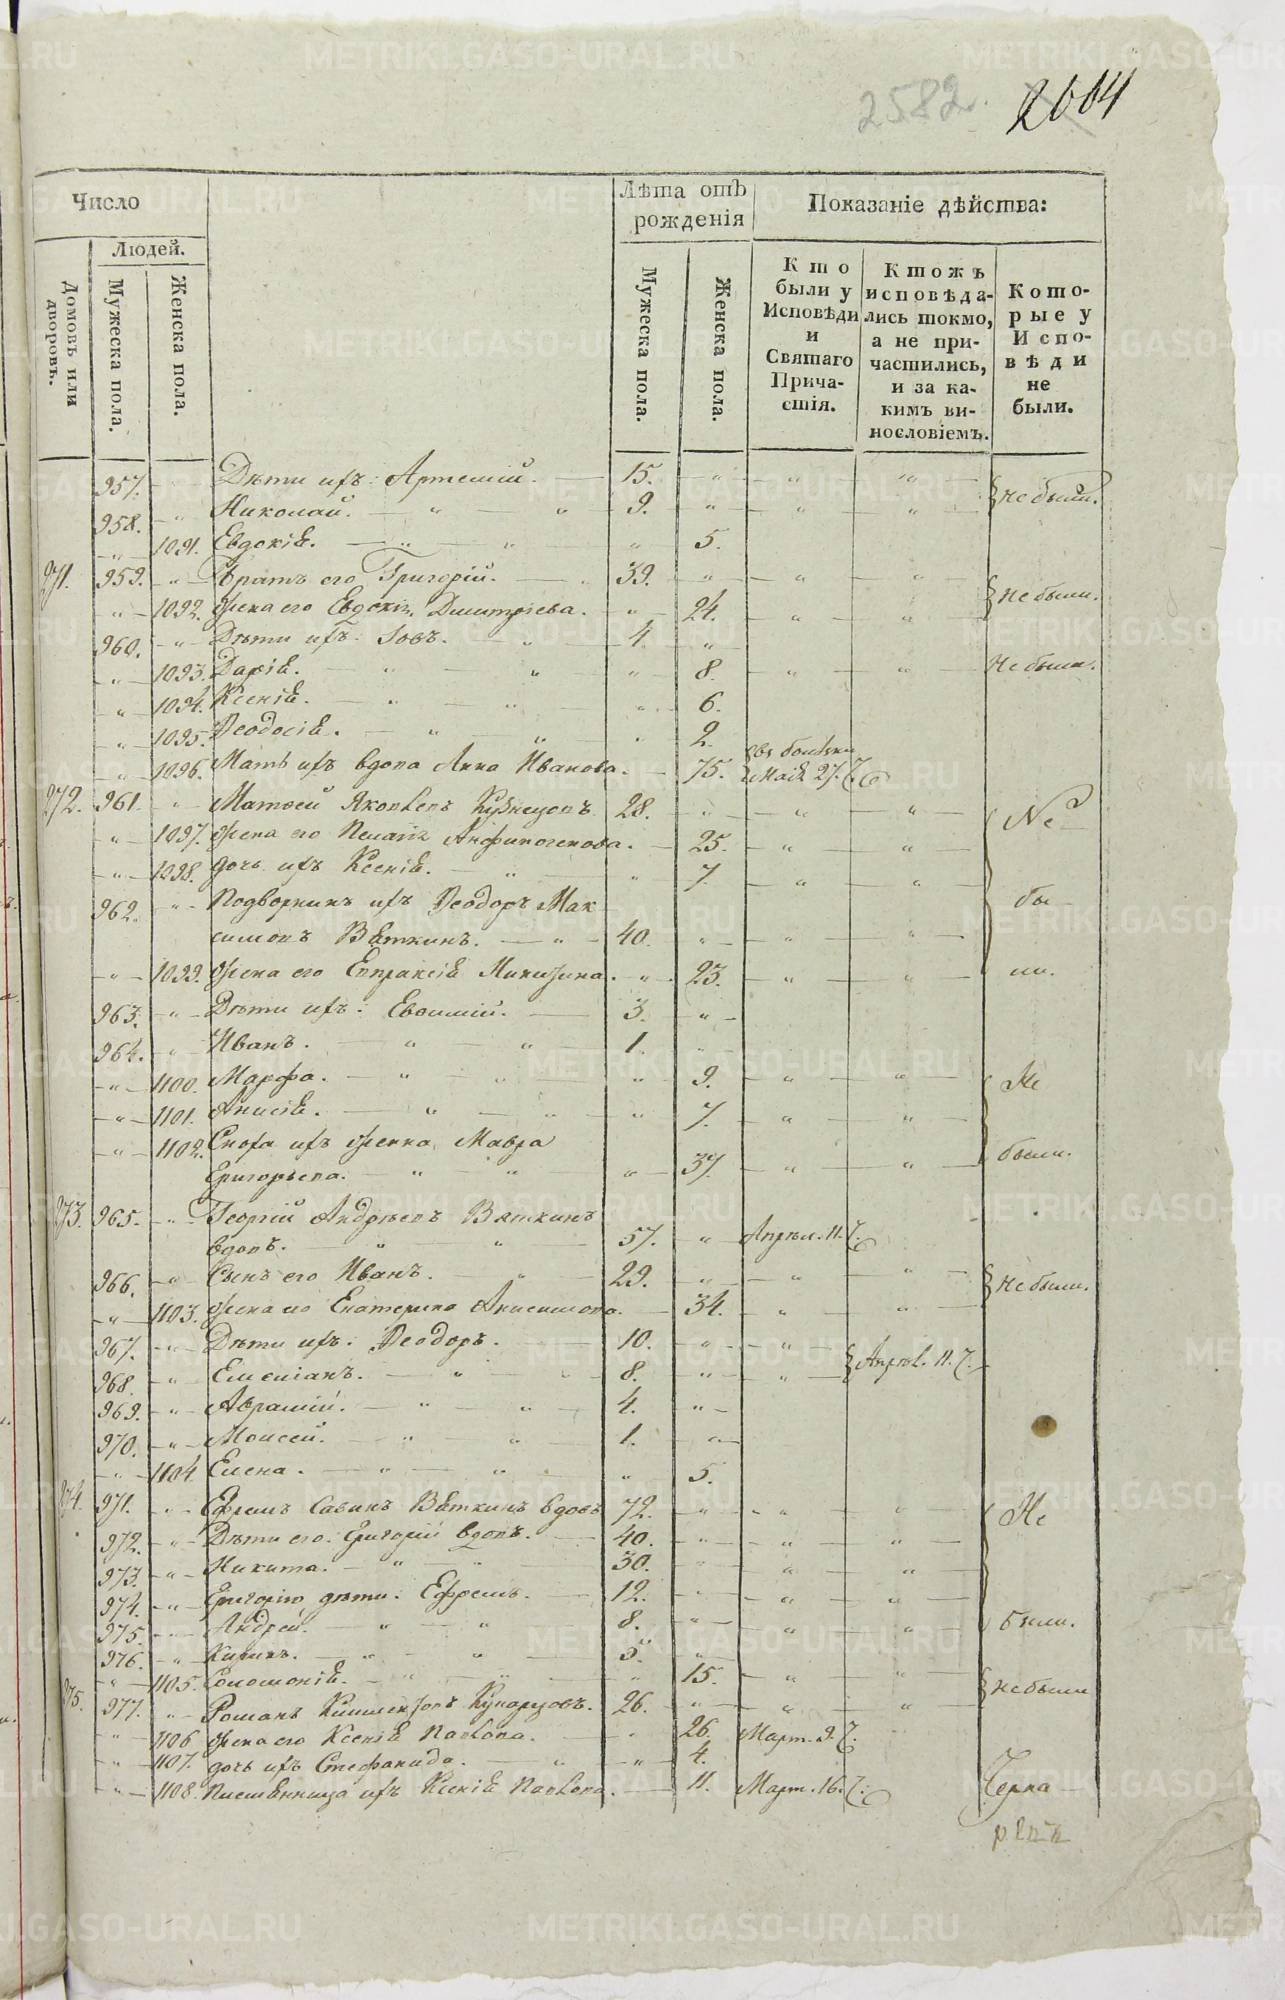 2582. 2604
Число
Лѣта отъ рожденія
Показаніе дѣйства:
Людей.
Домовъ или дворовъ.
Мужеска пола.
Женска пола.
Мужеска пола.
Женска пола.
Кто были у Исповѣди и Святаго Причастія.
Ктожъ исповѣдались токмо, а не причастились, и за какимъ винословіемъ.
Которые у Исповѣди не были.
957. Дѣти ихъ: Артемій. 15. не были.
958. Николай. 9.
1091. Евдокія. 5.
271. 959. Братъ его Григорій. 39.
1092. жена его Евдокія Дмитріева. 24. не были.
960. Дѣти ихъ: Іовъ. 4.
1093. Дарія. 8. не была.
1094. Ксенія. 6.
1095. Ѳеодосія. 2.
1096. Мать ихъ вдова Анна Иванова. 75. Маія 27. 7.
272. 961. Матвей Яковлевъ Кузнецовъ. 28. Не
1097. жена его Пелагія Анфиногенова. 25.
1098. дочь ихъ Ксенія. 7.
962. Подворникъ ихъ Ѳеодоръ Мак бы
симовъ Вяткинъ. 40.
1099. жена его Евпраксія Никизина. 23. ли.
963. Дѣти ихъ: Евѳимій. 3.
964. Иванъ. 1.
1100. Марфа. 9. Не
1101. Анисія. 7.
1102. Сноха ихъ женка Мавра
Григорьева. 37. были.
273. 965. Георгій Андреевъ Вяткинъ
вдовъ. 57. Апрѣл. 11. 7.
966. Сынъ его Иванъ. 29. не были.
1103. жена его Екатерина Анисимова. 34.
967. Дѣти ихъ: Ѳеодоръ. 10.
968. Емеліанъ. 8. Апрѣл. 11. 7.
969. Аврамій. 4.
970. Моисей. 1.
1104. Елена. 5.
274. 971. Ефремъ Савинъ Вяткинъ вдовъ 72. Не
972. Дѣти его: Григорій вдовъ. 40.
973. Никита. 30.
974. Григорію дѣти: Ефремъ. 12.
975. Андрей. 8. были.
976. Кирикъ. 5.
1105. Соломонія. 15.
275. 977. Романъ 26. не были
1106 жена его Ксенія Павлова. 26. Март. 9. 7.
1107. дочь ихъ Стефанида. 4.
1108. ихъ Ксенія Павлова. 11. Март. 16. 7.